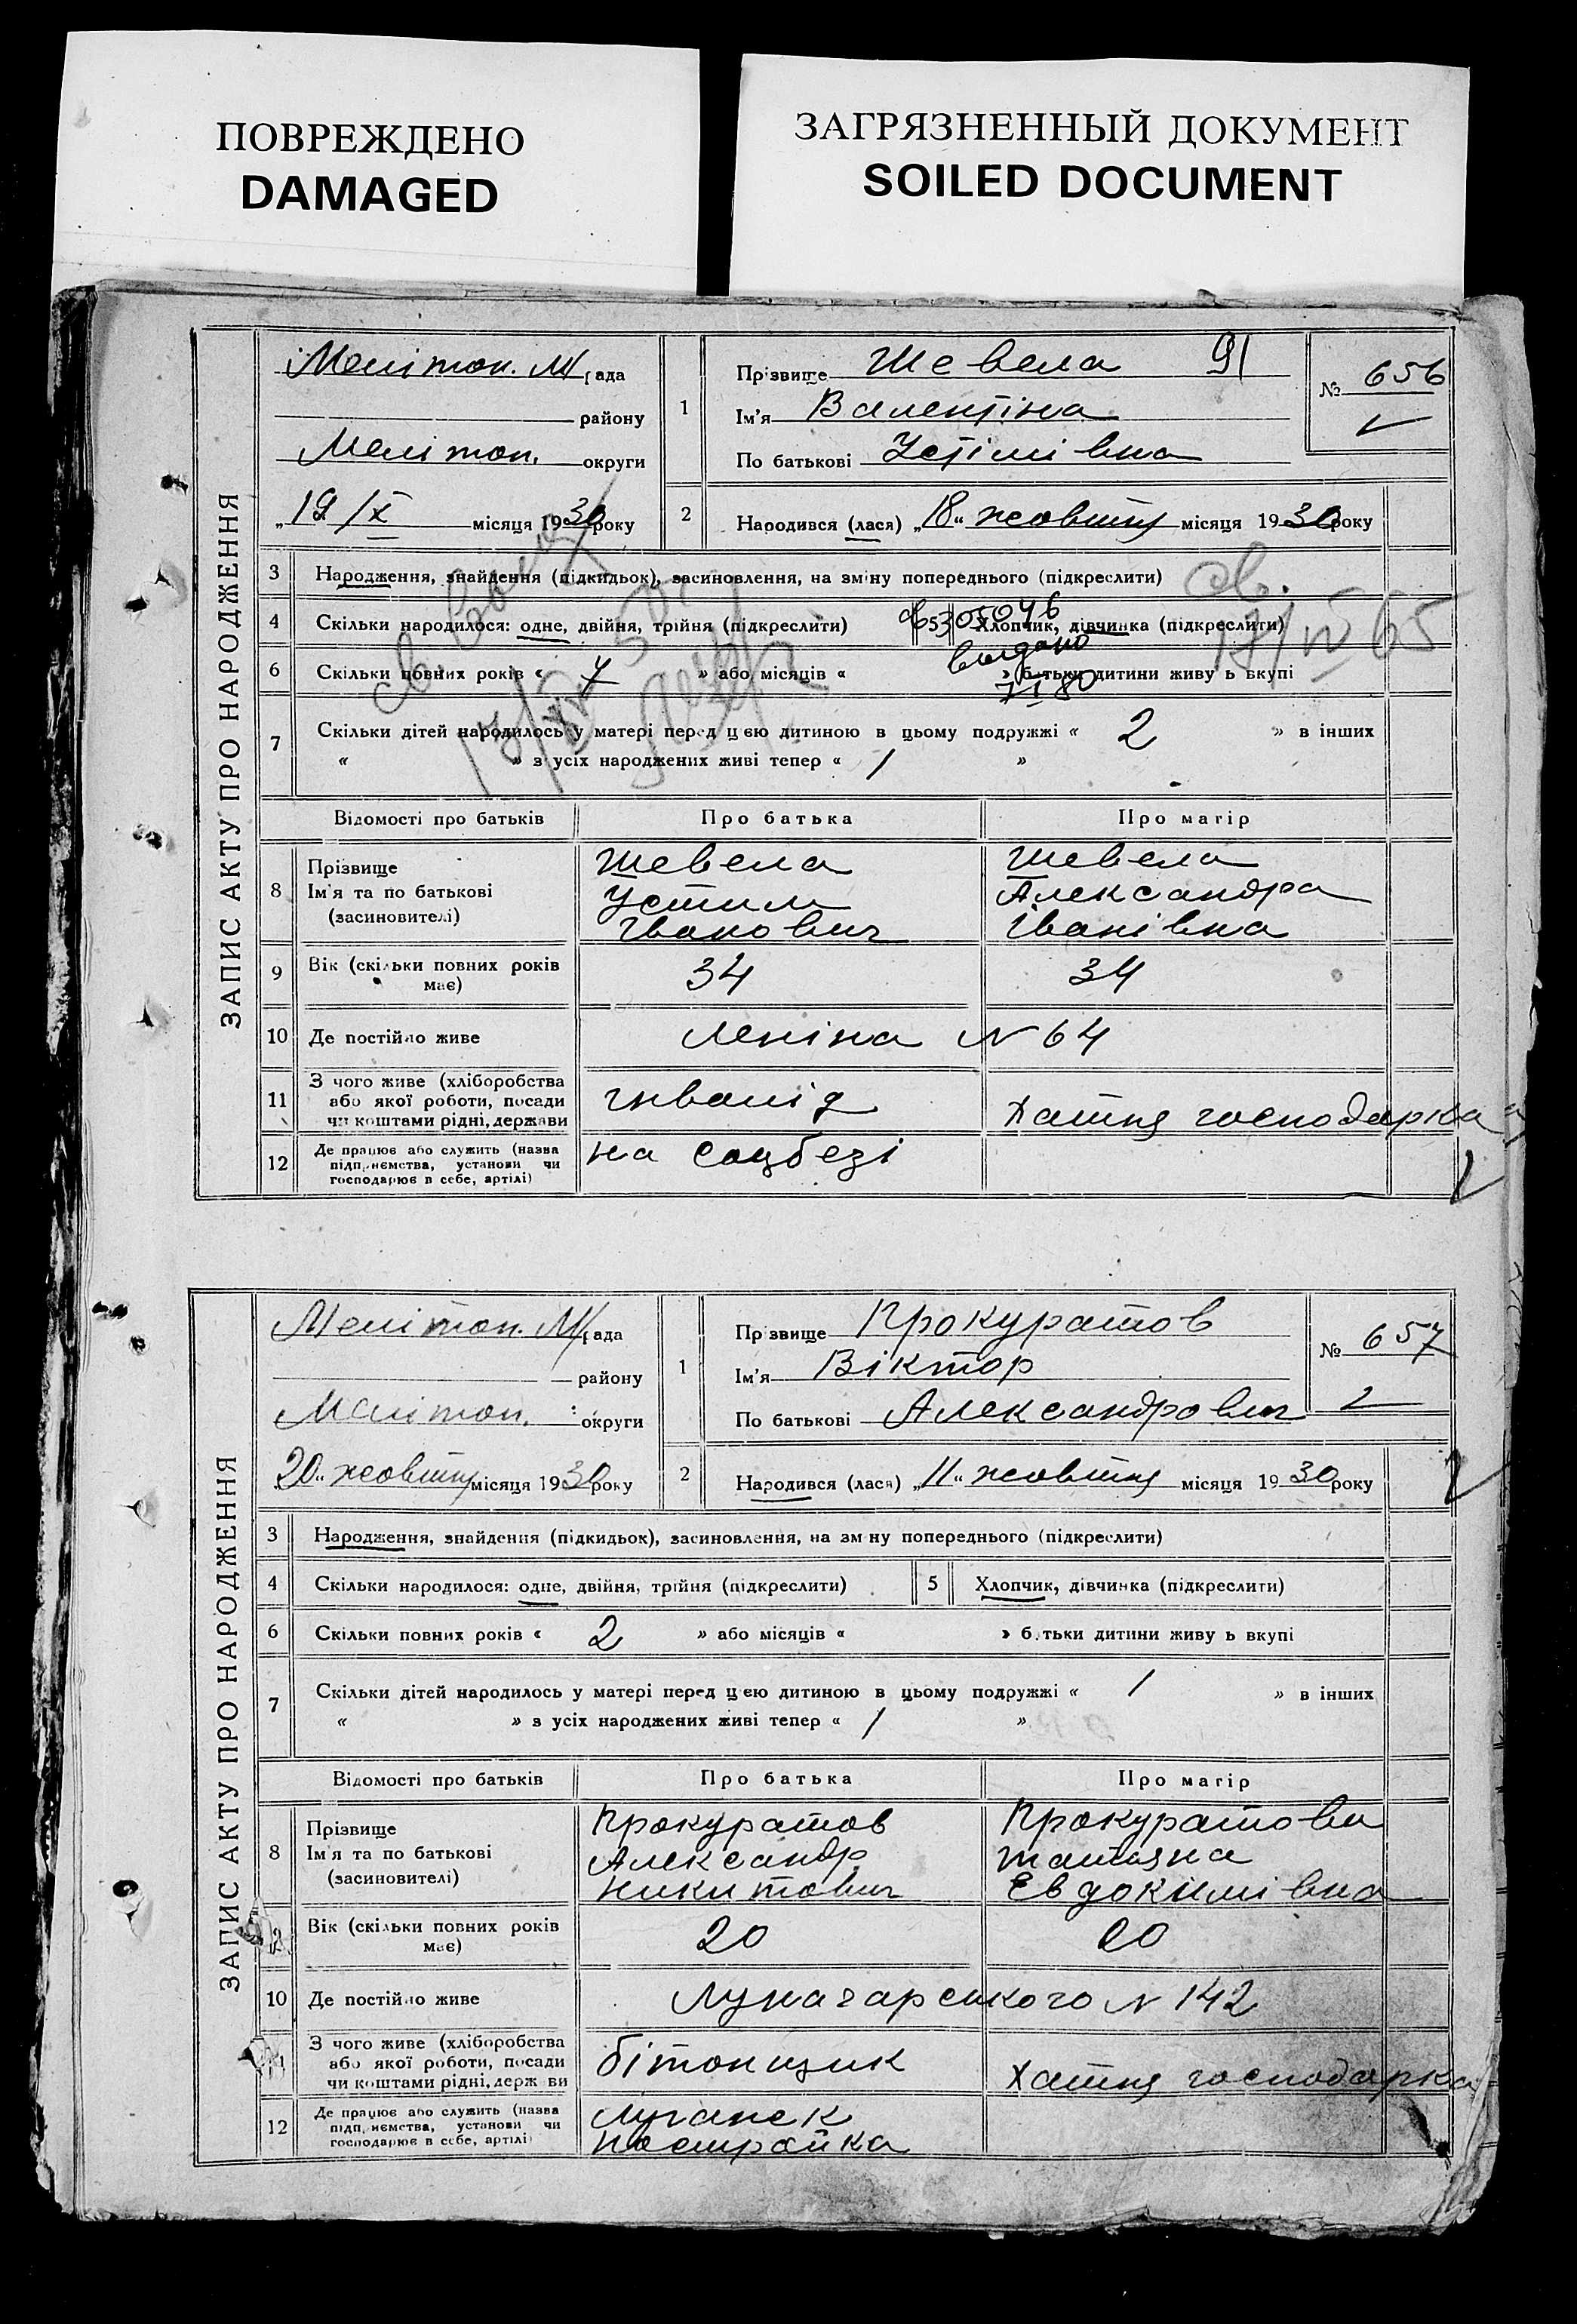 ПОВРЕЖДЕНО
DAMAGED
ЗАГРЯЗНЕННЫЙ ДОКУМЕНТ
SOILED DOCUMENT
ЗАПИС АКТУ ПРО НАРОДЖЕННЯ
Мелітоп. М/рада
району
Мелітоп. округи
„19/X місяця 1930 року
1
Прізвище Шевела 91
Ім'я Валентіна
По батькові Устімівна
№ 656
2
Народився (лася) „18" жовтня місяця 1930 року
3 Народження, знайдення (підкидьок), засиновлення, на зміну попереднього (підкреслити)
св.
4 Скільки народилося: одне, двійня, трійня (підкреслити) 5 Хлопчик, дівчинка (підкреслити)
выдано
6 Скільки повних років « 7 » або місяців « » батьки дитини живуть вкупі
7 Скільки дітей народилось у матері перед цією дитиною в цьому подружжі « 2 » в інших
« » з усіх народжених живі тепер « 1 »
Відомості про батьків Про батька Про матір
8 Прізвище Ім'я та по батькові (засиновителі)
Шевела Устим Іванович
Шевела Александра Іванівна
9 Вік (скільки повних років має) 34 34
10 Де постійно живе Леніна N 64
11 З чого живе (хліборобства або якої роботи, посади чи коштами рідні, держави інвалід Хатня господарка
12 Де працює або служить (назва підприємства, установи чи господарює в себе, артілі) на соцбезі
ЗАПИС АКТУ ПРО НАРОДЖЕННЯ
Мелітоп. М/рада
району
Мелітоп. округи
„20" жовтня місяця 1930 року
1
Прізвище Прокуратов
Ім'я Віктор
По батькові Александрович
№ 657
2
Народився (лася) „11" жовтня місяця 1930 року
3 Народження, знайдення (підкидьок), засиновлення, на зміну попереднього (підкреслити)
4 Скільки народилося: одне, двійня, трійня (підкреслити) 5 Хлопчик, дівчинка (підкреслити)
6 Скільки повних років « 2 » або місяців « » батьки дитини живуть вкупі
7 Скільки дітей народилось у матері перед цією дитиною в цьому подружжі « 1 » в інших
« » з усіх народжених живі тепер « 1 »
Відомості про батьків Про батька Про матір
8 Прізвище Ім'я та по батькові (засиновителі)
Прокуратов Александр Никитович
Прокуратова Татьяна Евдокимівна
Вік (скільки повних років має) 20 20
10 Де постійно живе Луначарського N 142
З чого живе (хліборобства або якої роботи, посади чи коштами рідні, держави бітонщик Хатня господарка
12 Де працює або служить (назва підприємства, установи чи господарює в себе, артілі) Луганск постройка